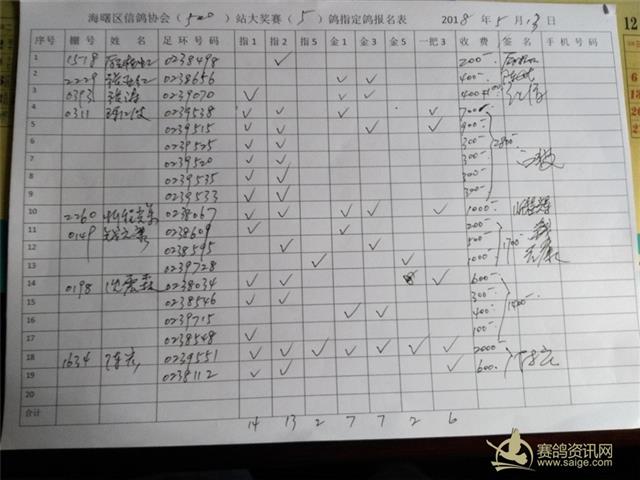 海曙区信鸽协会（500）站大奖赛（5）鸽指定鸽报名表 2018年5月13日 12
序号 棚号 姓名 足环号码 指1 指2 指5 金1 金3 金5 一把3 收费 签名 手机号码
1 1518 0238498 ✓ 200-
2 2229 0238656 ✓ ✓ 400-
3 0393 0239070 ✓ ✓ ✓
4 0311 0239538 ✓ ✓ ✓ ✓ ✓
5 0239515 ✓ ✓ ✓ ✓ 900-
6 0239525 ✓ ✓ 300- 2800-
7 0239520 ✓ ✓ 300-
8 0239535 ✓ ✓ 300-
9 0239533 ✓ ✓ 300-
10 2260 0238067 ✓ ✓ ✓ ✓ ✓ 1000-
11 0149 0238609 ✓ ✓ 200-
12 0238595 ✓ ✓ ✓ 1700-
13 0239728 ✓ ✓ 1000-
14 0198 0238034 ✓ ✓ ✓ 600-
15 0238546 ✓ ✓ 300- 1400-
16 0239715 ✓ ✓ 400-
17 0238548 ✓ 100-
18 1634 0239551 ✓ ✓ ✓ ✓ ✓ ✓ ✓ 2000-
19 0238112 ✓ ✓ ✓ 600-
20
合计
14 13 2 7 7 2 6
赛鸽资讯网
www.saige.com